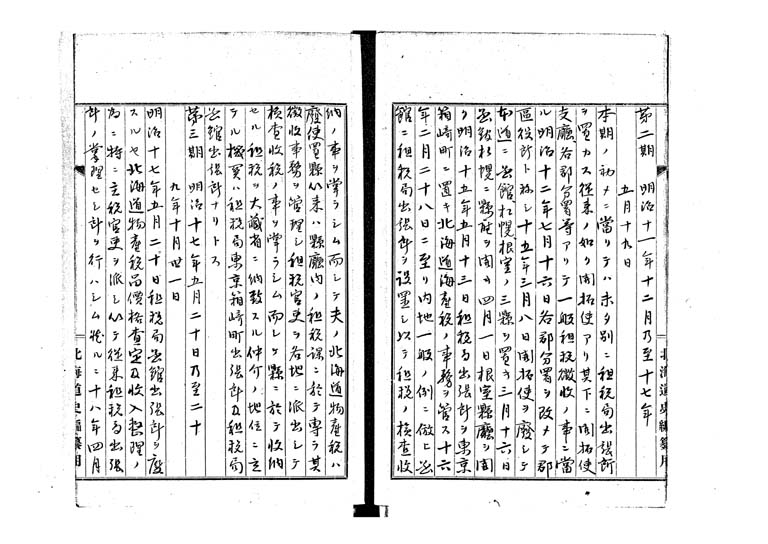 第二期 明治十一年十二月乃至十七年
五月十九日
本期ノ初メニ當リテハ未タ別ニ租税局出張所
ヲ置カス従来ノ如ク開拓使アリ其下ニ開拓使
支廳各郡分署等アリテ一般租税徴收ノ事ニ當
ル明治十二年七月十六日各郡分署ヲ改メテ郡
區役所ト為シ十五年二月八日開拓使ヲ廢シテ
本道ニ函館札幌根室ノ三縣ヲ置キ三月十六日
函館札幌ニ縣廳ヲ開キ四月一日根室縣廳ヲ開
ク明治十五年五月十三日租税局出張所ヲ東京
箱崎町ニ置キ北海道海産税ノ事務ヲ管ス十六
年二月二十八日ニ至リ内地一般ノ例ニ倣ヒ函
館ニ租税局出張所ヲ設置シ以テ租税ノ檢査收
納ノ事ヲ掌ラシム而シテ夫ノ北海道物産税ハ
廢使置縣以来ハ縣廳内ノ租税課ニ於テ專ラ其
徴收事務ヲ管理シ租税官吏ヲ各地ニ派出シテ
檢査收税ノ事ヲ掌ラシム而シテ縣ニ於テ收納
セル租税ヲ大藏省ニ納致スル仲介ノ地位ニ立
テル機関ハ租税局東京箱崎町出張所及租税局
函館出張所ナリトス
第三期 明治十七年五月二十日乃至二十
九年十月卅一日
明治十七年五月二十日租税局函館出張所ヲ廢
スルヤ北海道物産税品價格査定及收入整理ノ
為ニ特ニ主税官吏ヲ派シ以テ従来租税局出張
所ノ掌理セシ所ヲ行ハシム然ルニ十八年四月
北海道史編纂用
北海道史編纂用